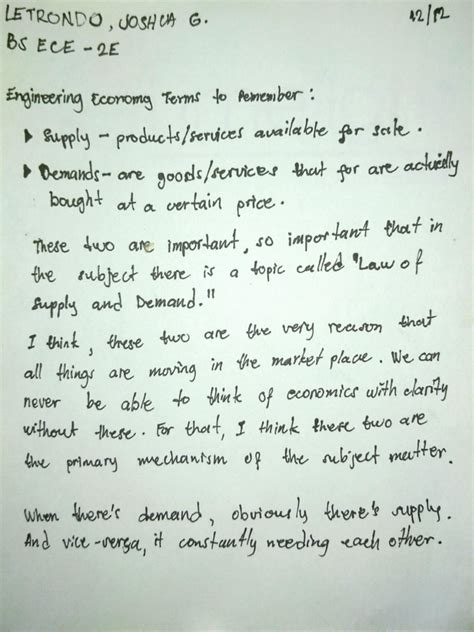 LETRONDO, JOSHUA G. 12/12
BS ECE - 2E
Engineering Economy Terms to Remember:
▸ Supply - products/services available for sale.
▸ Demands - are goods/services that for are actually
bought at a certain price.
These two are important, so important that in
the subject there is a topic called "Law of
Supply and Demand."
I think, these two are the very reason that
all things are moving in the market place. We can
never be able to think of economics with clarity
without these. For that, I think these two are
the primary mechanism of the subject matter.
When there's demand, obviously there's supply.
And vice-versa, it constantly needing each other.